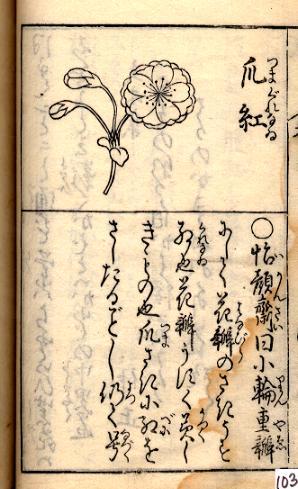 爪紅
つまぐれなゐ
○怡顔齋曰小輪重瓣
にして花瓣のさきうす
紅也花瓣うすく美し
きもの也爪さきに紅を
さしたるごとし仍て号く
103